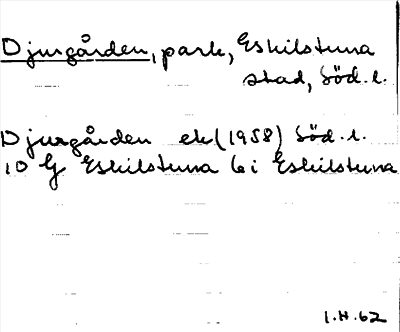 Djurgården, park, Eskilstuna
stad, Söd. l.
Djurgården ek (1958) Söd. l.
10 G Eskilstuna 6 i Eskilstuna
I.H. 62